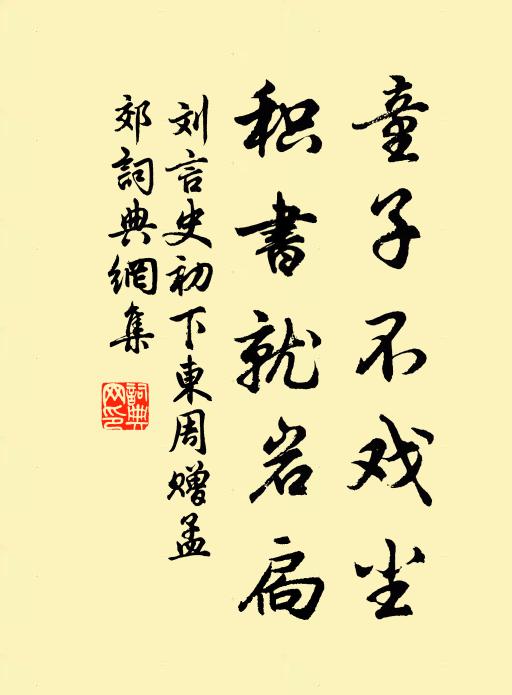 童子不戏尘
积书就岩扃
刘言史初下東周赠孟
郊詞典網集
詞典網印